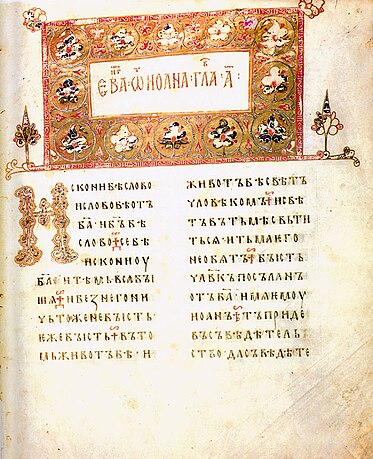 ЕВА·Ѿ ИОАНА·ГЛА·А҃·
ИСКОНИ БѢ СЛОВО
И СЛОВО БѢ ОТЪ
Б҃А· И Б҃Ъ БѢ
СЛОВО· СЕ БѢ
ИСКОНИ ОУ
Б҃А· И ТѢМЬ ВЬСА БЪІ
ШѦ· И БЕЖ НЕГО НИ
ЧЬТОЖЕ НЕ БЪІСТЬ·
ЕЖЕ БЪІСТЬ· ВЪ ТО
МЬ ЖИВОТЪ БѢ· И
ЖИВОТЪ БѢ СВѢТЪ
ЧЛОВѢКОМЪ· И СВѢ
ТЪ ВЪ ТЬМѢ СВЬТИ
ТЬСѦ· И ТЬМА ЕГО
НЕ ОБѦТЪ· БЪІСТЬ
ЧЛ҃ВКЪ ПОСЪЛАНЪ
ОТЪ Б҃А· ИМѦ ѤМОУ
ИОАНЪ· ТЪ ПРИДЕ
ВЪ СЪВѢДѢТЕЛЬ
СТВО· ДА СЪВѢДѢТЕ